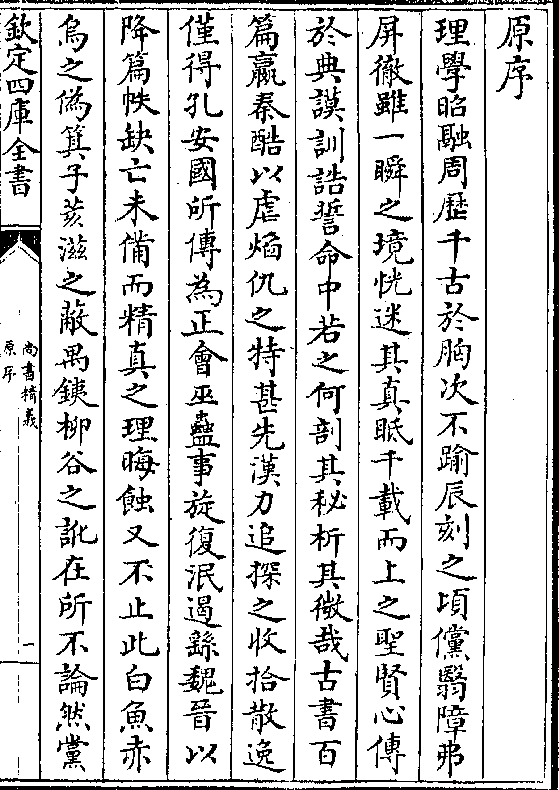 原序
理學昭融周歷千古於胸次不踰辰刻之頃儻翳障弗
屏徹雖一瞬之境恍迷其真眂千載而上之聖賢心傳
於典謨訓誥誓命中若之何剖其秘析其微哉古書百
篇嬴秦酷以虐焰仇之特甚先漢力追探之收拾散逸
僅得孔安國所傳為正會巫蠱事旋復泯遏繇魏晉以
降篇帙缺亡未備而精真之理晦蝕又不止此白魚赤
烏之偽箕子荄滋之蔽禺銕柳谷之訛在所不論然黨
欽定四庫全書
尚書精義
原序
一